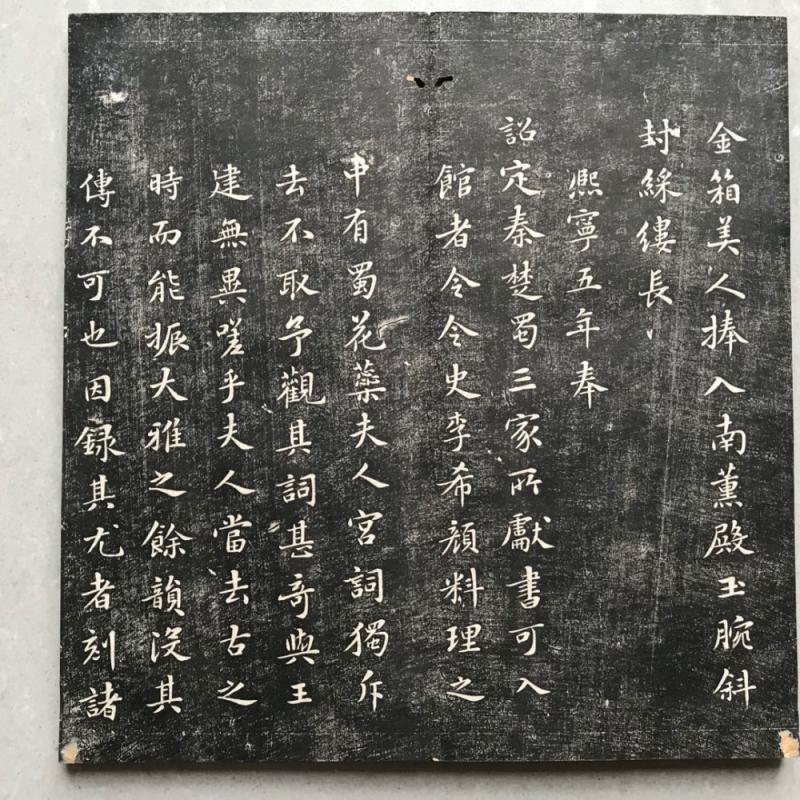 金箱美人捧入南薰殿玉腕斜
封綵縷長
熙寧五年奉
詔定秦楚蜀三家所獻書可入
館者令令史李希顔料理之
中有蜀花蘂夫人宮詞獨斥
去不取予觀其詞甚奇與王
建無異嗟乎夫人當去古之
時而能振大雅之餘韻沒其
傳不可也因録其尤者刻諸